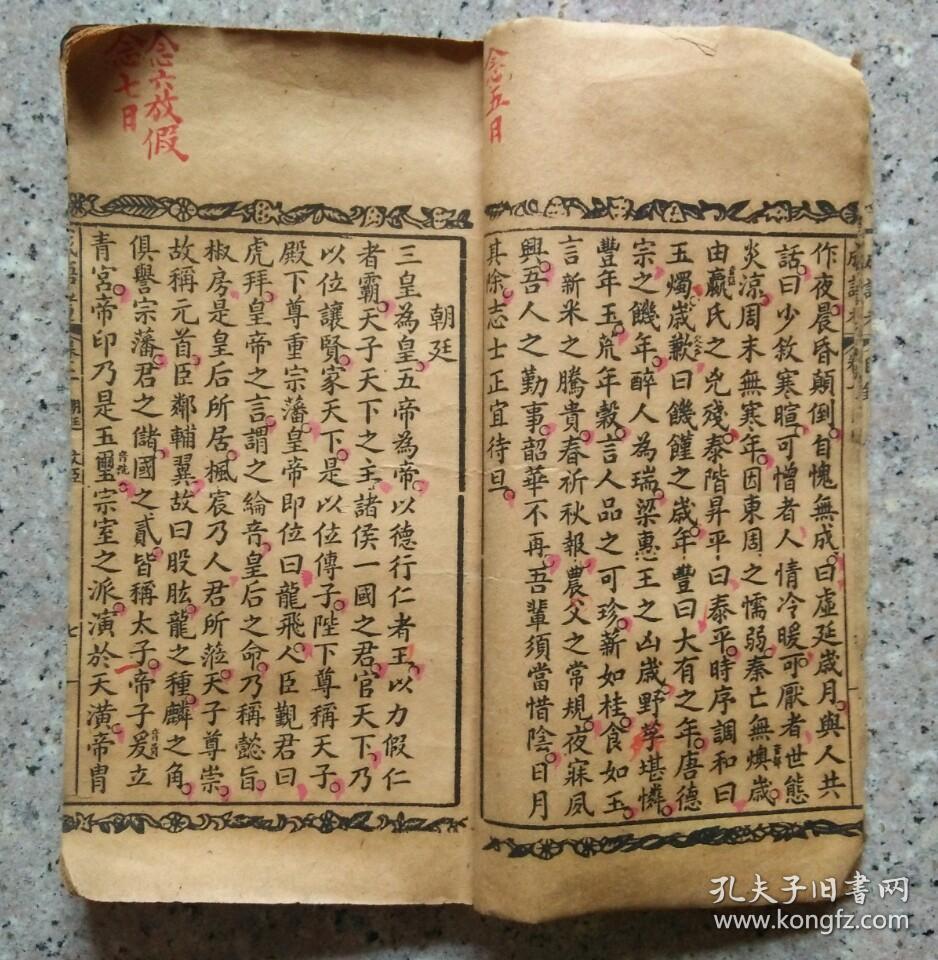 念五日
作夜晨昏顛倒自愧無成曰虛延歲月與人共
話曰少敘寒暄可憎者人情冷暖可厭者世態
炎涼周末無寒年因東周之懦弱秦亡無燠歲
由嬴氏之兇殘泰階昇平曰泰平時序調和曰
玉燭歲歉曰饑饉之歲年豐曰大有之年唐德
宗之饑年醉人為瑞梁惠王之凶歲野莩堪憐
豐年玉荒年穀言人品之可珍薪如桂食如玉
言薪米之騰貴春祈秋報農父之常規夜寐夙
興吾人之勤事韶華不再吾輩須當惜陰日月
其除志士正宜待旦
念六放假
念七日
朝廷
三皇為皇五帝為帝以德行仁者王以力假仁
者霸天子天下之主諸侯一國之君官天下乃
以位讓賢家天下是以位傳子陛下尊稱天子
殿下尊重宗藩皇帝即位曰龍飛人臣覲君曰
虎拜皇帝之言謂之綸音皇后之命乃稱懿旨
椒房是皇后所居楓宸乃人君所蒞天子尊崇
故稱元首臣鄰輔翼故曰股肱龍之種麟之角
俱譽宗藩君之儲國之貳皆稱太子帝子爰立
青宮帝印乃是玉璽宗室之派演於天潢帝胄
七
孔夫子旧书网
www.kongfz.com